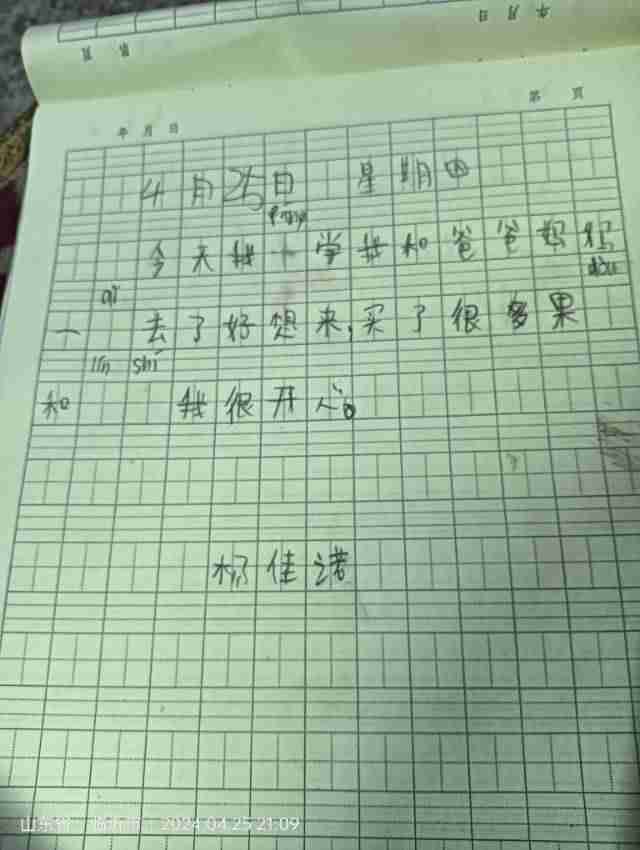 年 月 日
第 页
年 月 日
第 页
4月25日 星期四
今天我一学我和爸爸妈妈
qǐ
一 去了好想来,买了很多果
lín shí
和 我很开心。
杨佳诺
2024.04.25 21:09